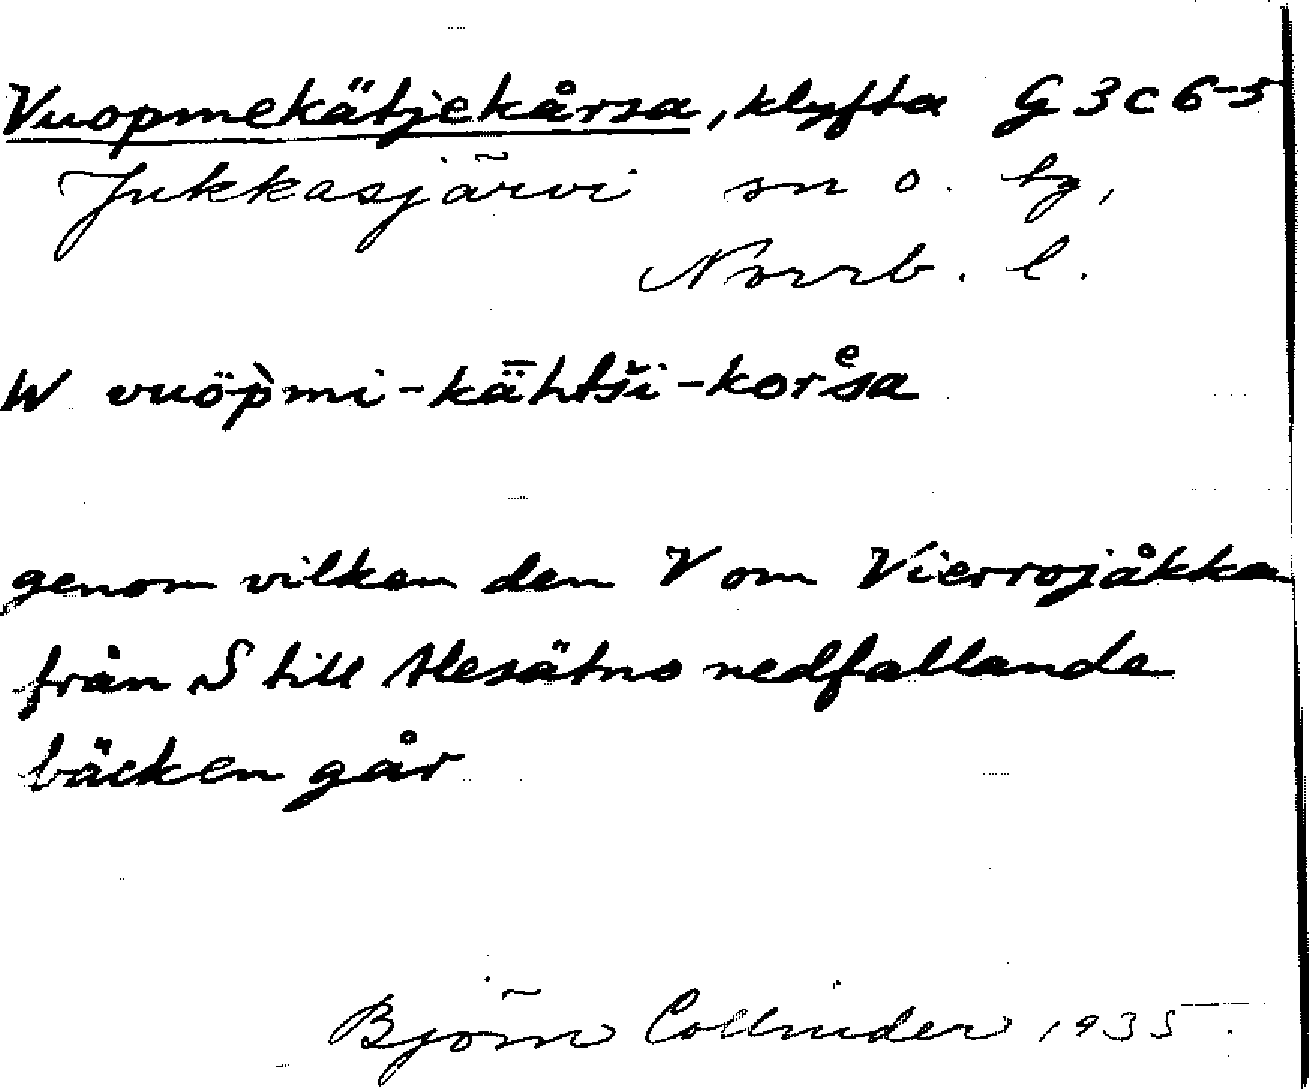 Vuopmekätjekårsa, klyfta G 3 c 6-5
Jukkasjärvi sn o. tg,
Norrb. l.
W vuöp̀mi-kǟhtši-korᵉsa
genom vilken den V om Vierrojåkka
från S till Alesätno nedfallande
bäcken går
Björn Collinder 1935